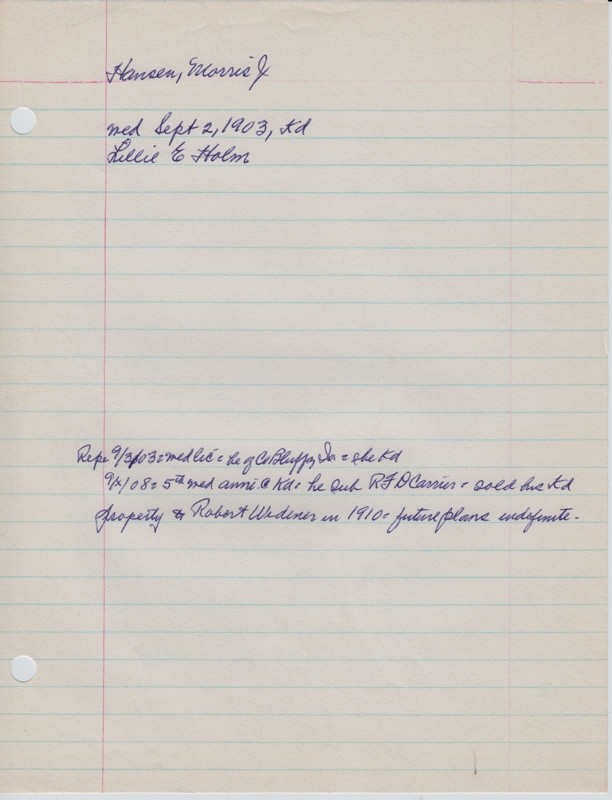 Hansen, Morris J
wed Sept 2, 1903, Kd
Lillie E Holm
Rep = 9/3/03 = wed lic = he of Co Bluffs, Ia = she Kd
9/4/08 = 5th wed anni @ Kd = he sub RFD Carrier = sold his Kd
property to Robert Widener in 1910 = future plans indefinite.